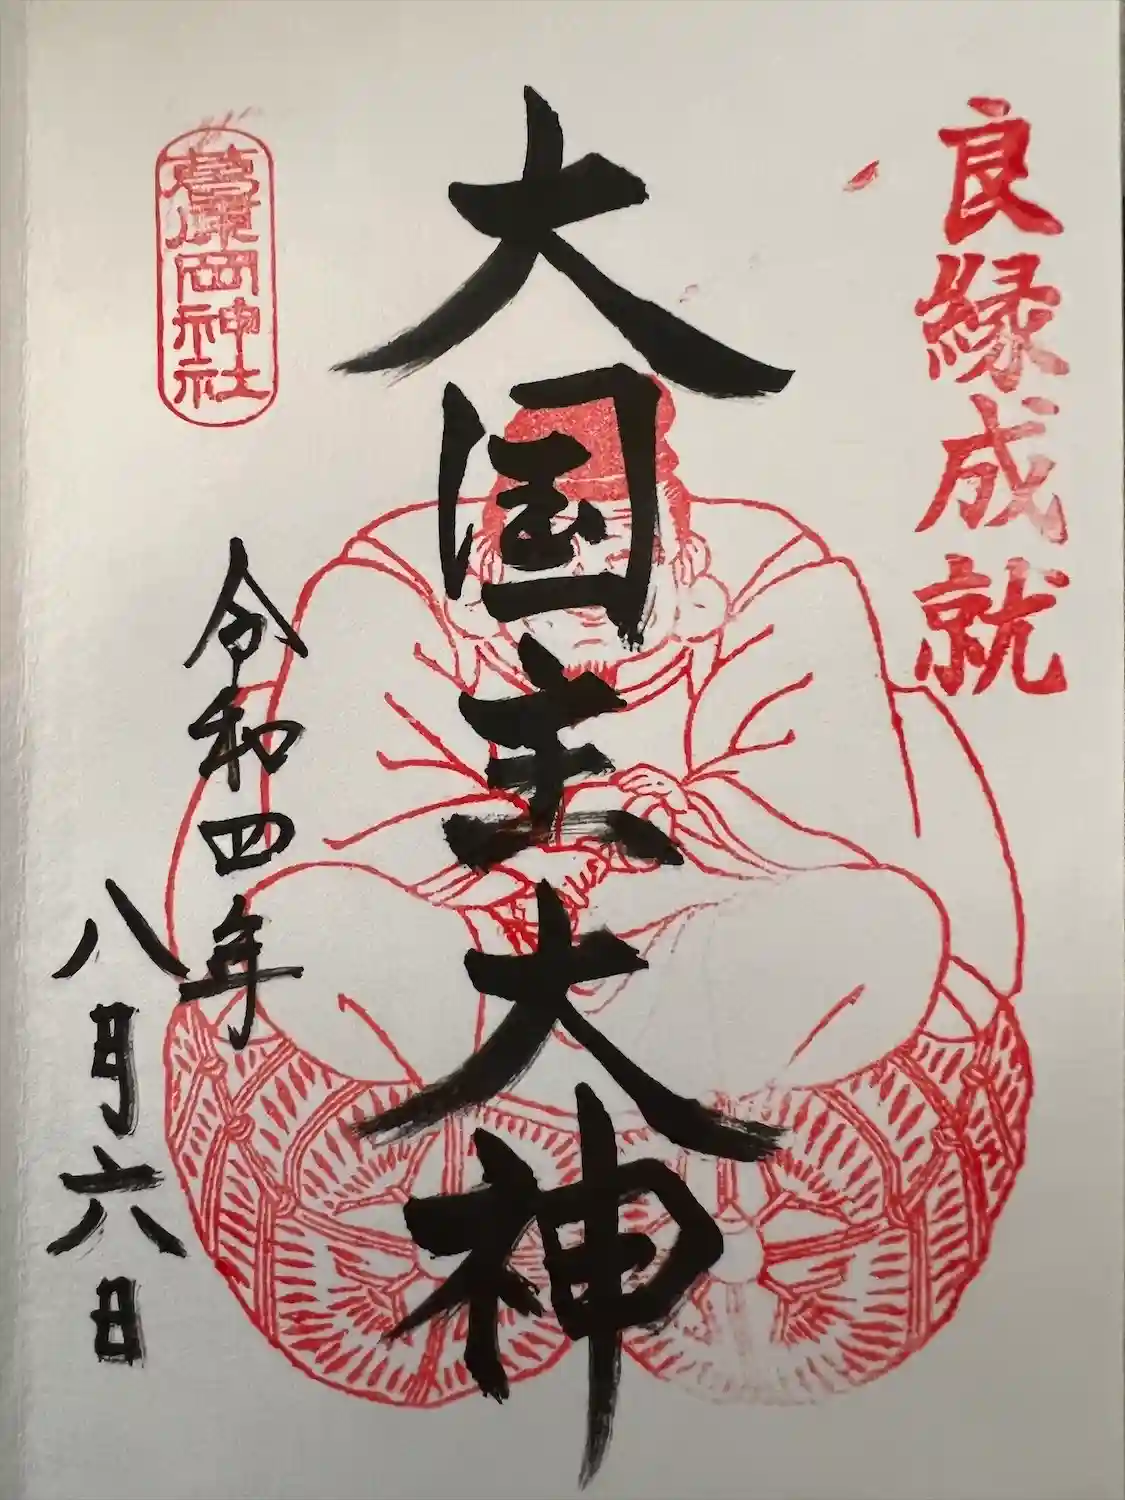 良縁成就
大国主大神
葛原岡神社
令和四年
八月六日